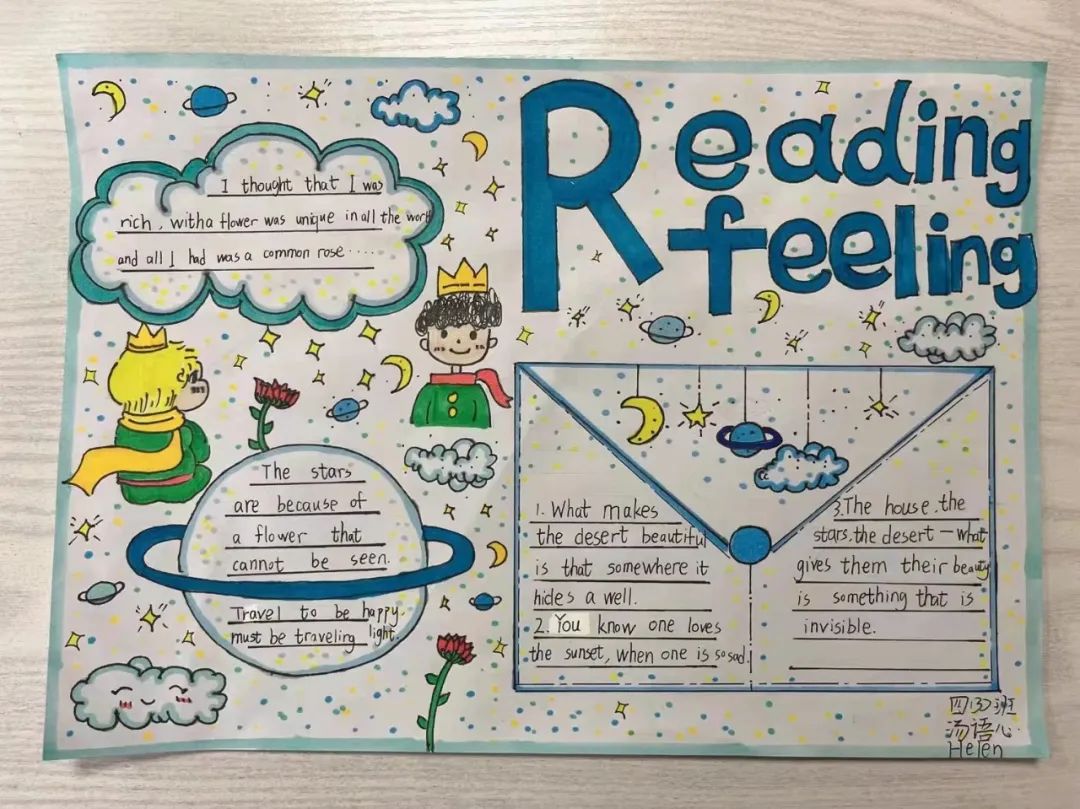 Reading
feeling
I thought that I was
rich, witha flower was unique in all the worl
and all I had was a common rose.....
The stars
are because of
a flower that
cannot be seen.
Travel to be happy.
must be traveling light.
1. What makes
the desert beautiful
is that somewhere it
hides a well.
2. You know one loves
the sunset, when one is so sad.
3. The house. the
stars. the desert — what
gives them their beauty
is something that is
invisible.
四(3)班
汤语心
Helen